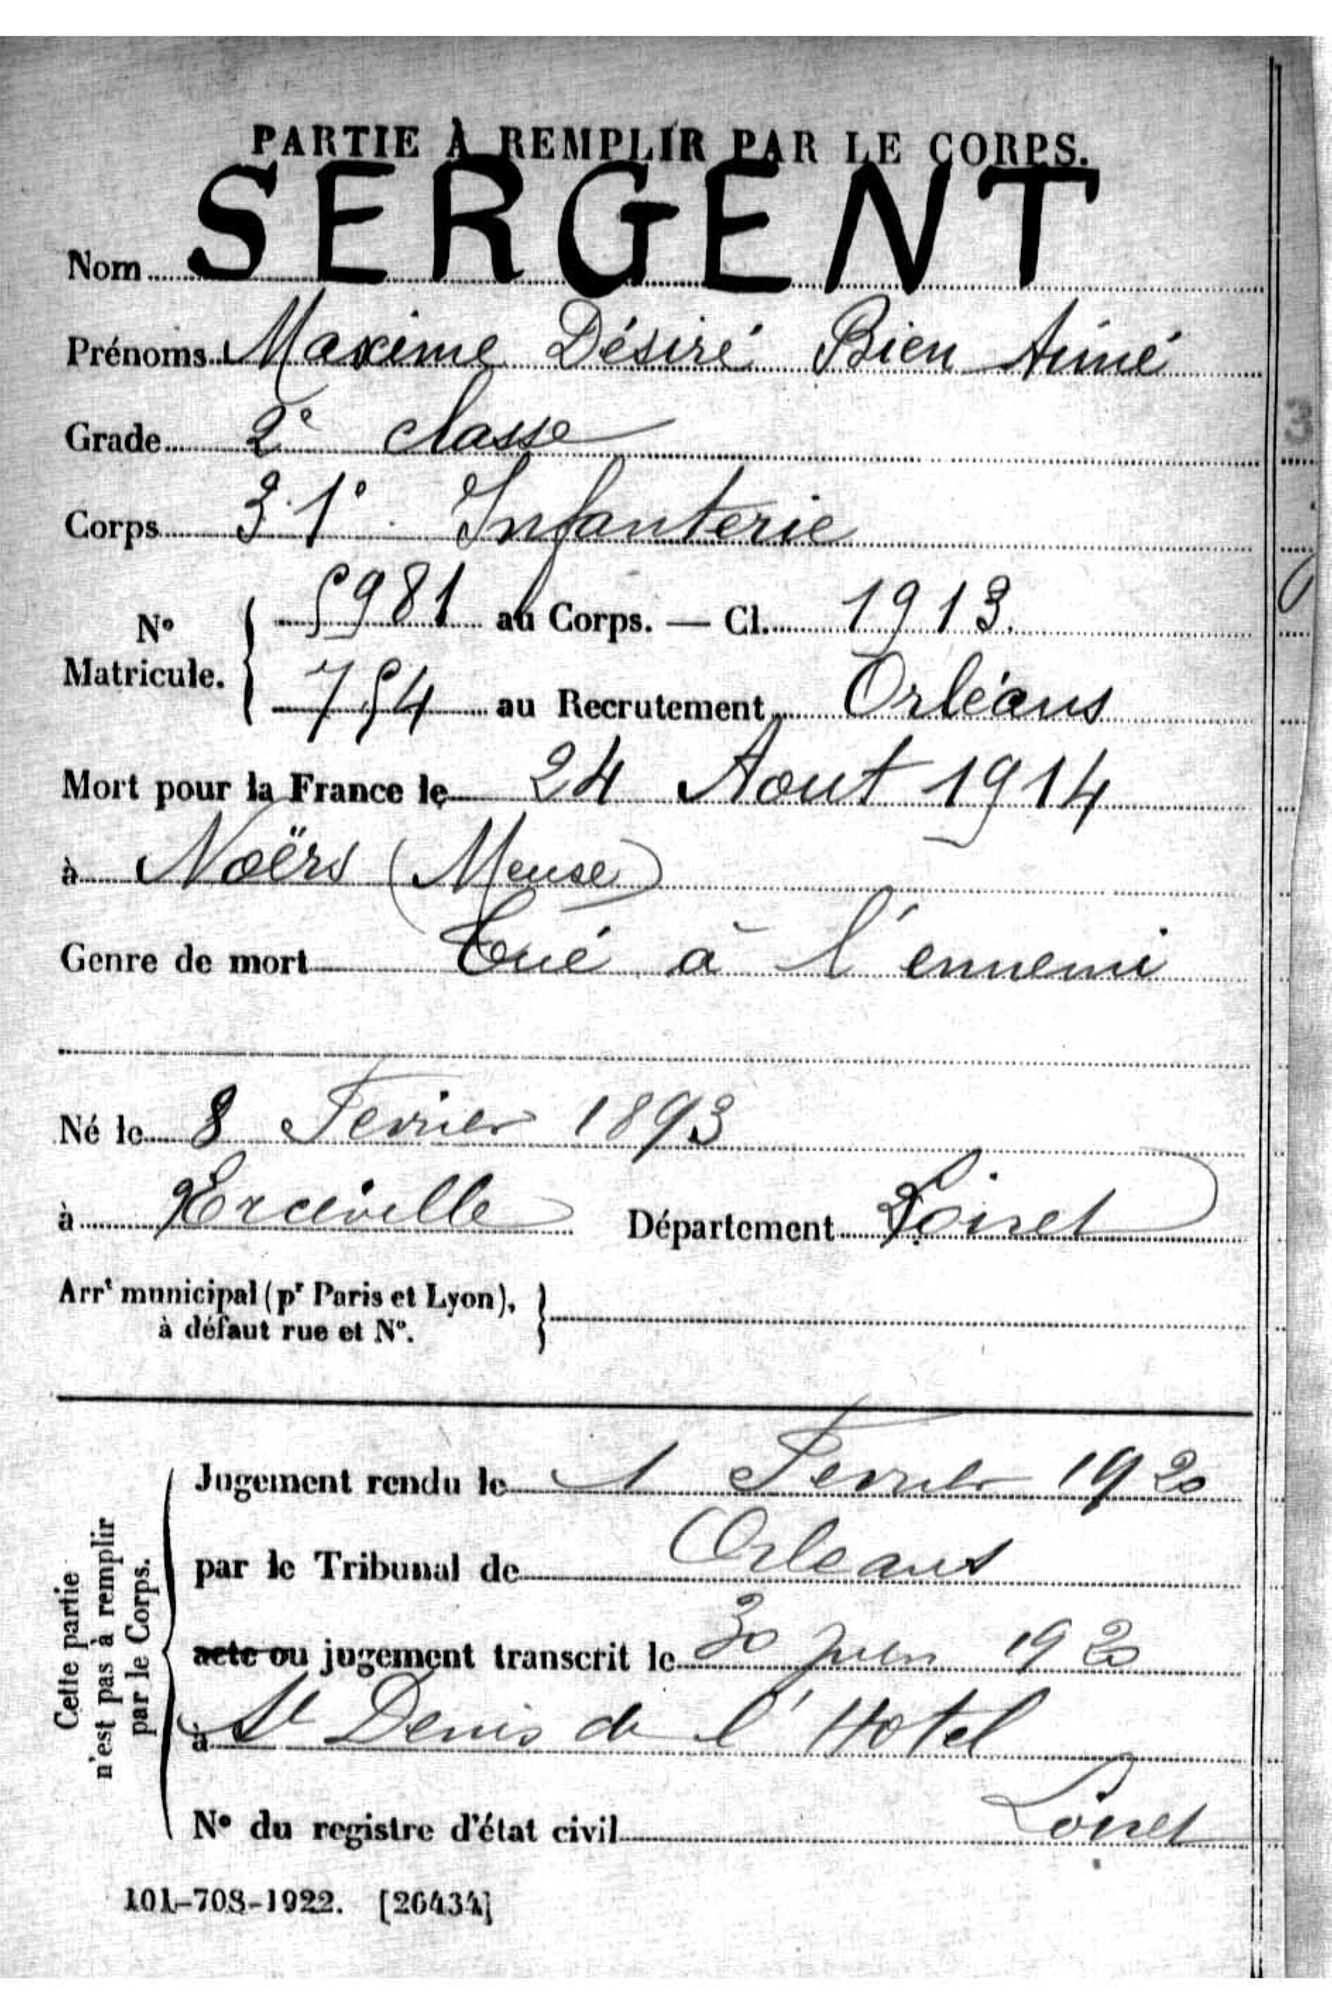 PARTIE À REMPLIR PAR LE CORPS.
Nom SERGENT
Prénoms Maxime Désiré Bien Aimé
Grade 2e classe
Corps 31e Infanterie
No Matricule. { 5981 au Corps. — Cl. 1913.
754 au Recrutement Orléans
Mort pour la France le 24 Aout 1914
à Noërs (Meuse)
Genre de mort Tué à l'ennemi
Né le 8 Fevrier 1893
à Erceville Département Loiret
Arrt municipal (pr Paris et Lyon), }
à défaut rue et No.
Cette partie
n'est pas à remplir
par le Corps.
Jugement rendu le 1 Fevrier 1920
par le Tribunal de Orleans
acte ou jugement transcrit le 30 Juin 1920
à St Denis de l'Hotel
No du registre d'état civil Loiret
101-708-1922. [26434]